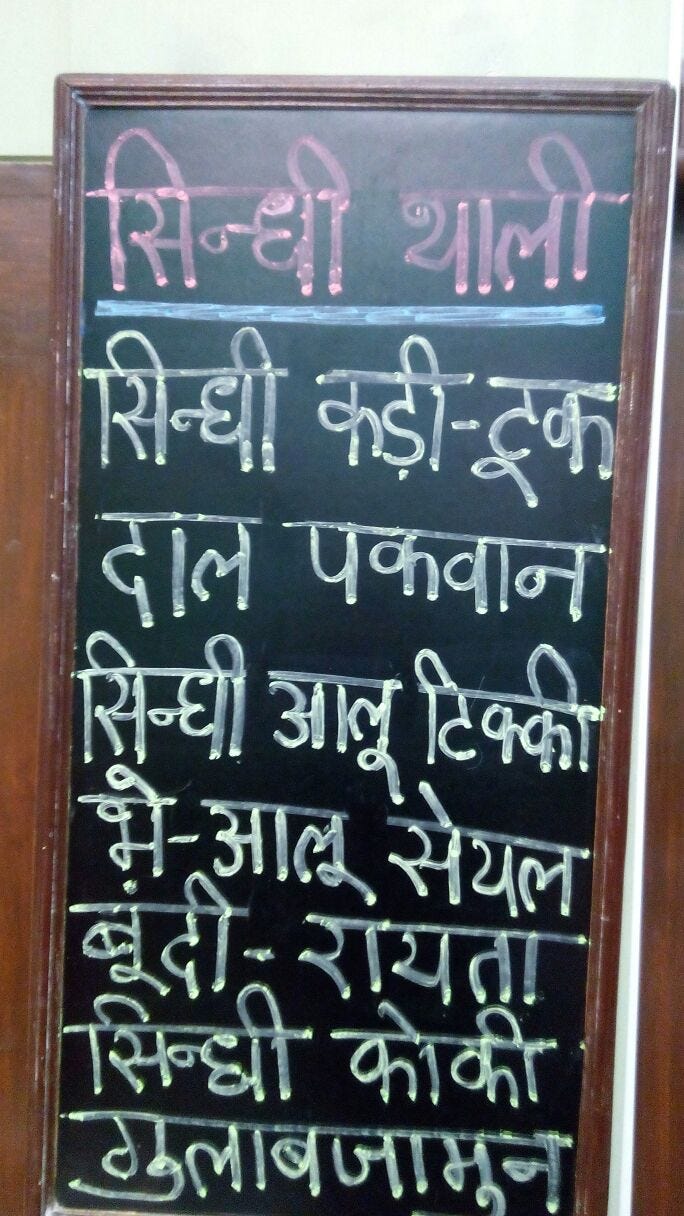 सिन्धी थाली
सिन्धी कड़ी-टूक
दाल पकवान
सिन्धी आलू टिक्की
भ़े-आलू सेयल
बूदी-रायता
सिन्धी कोकी
गुलाबजामुन